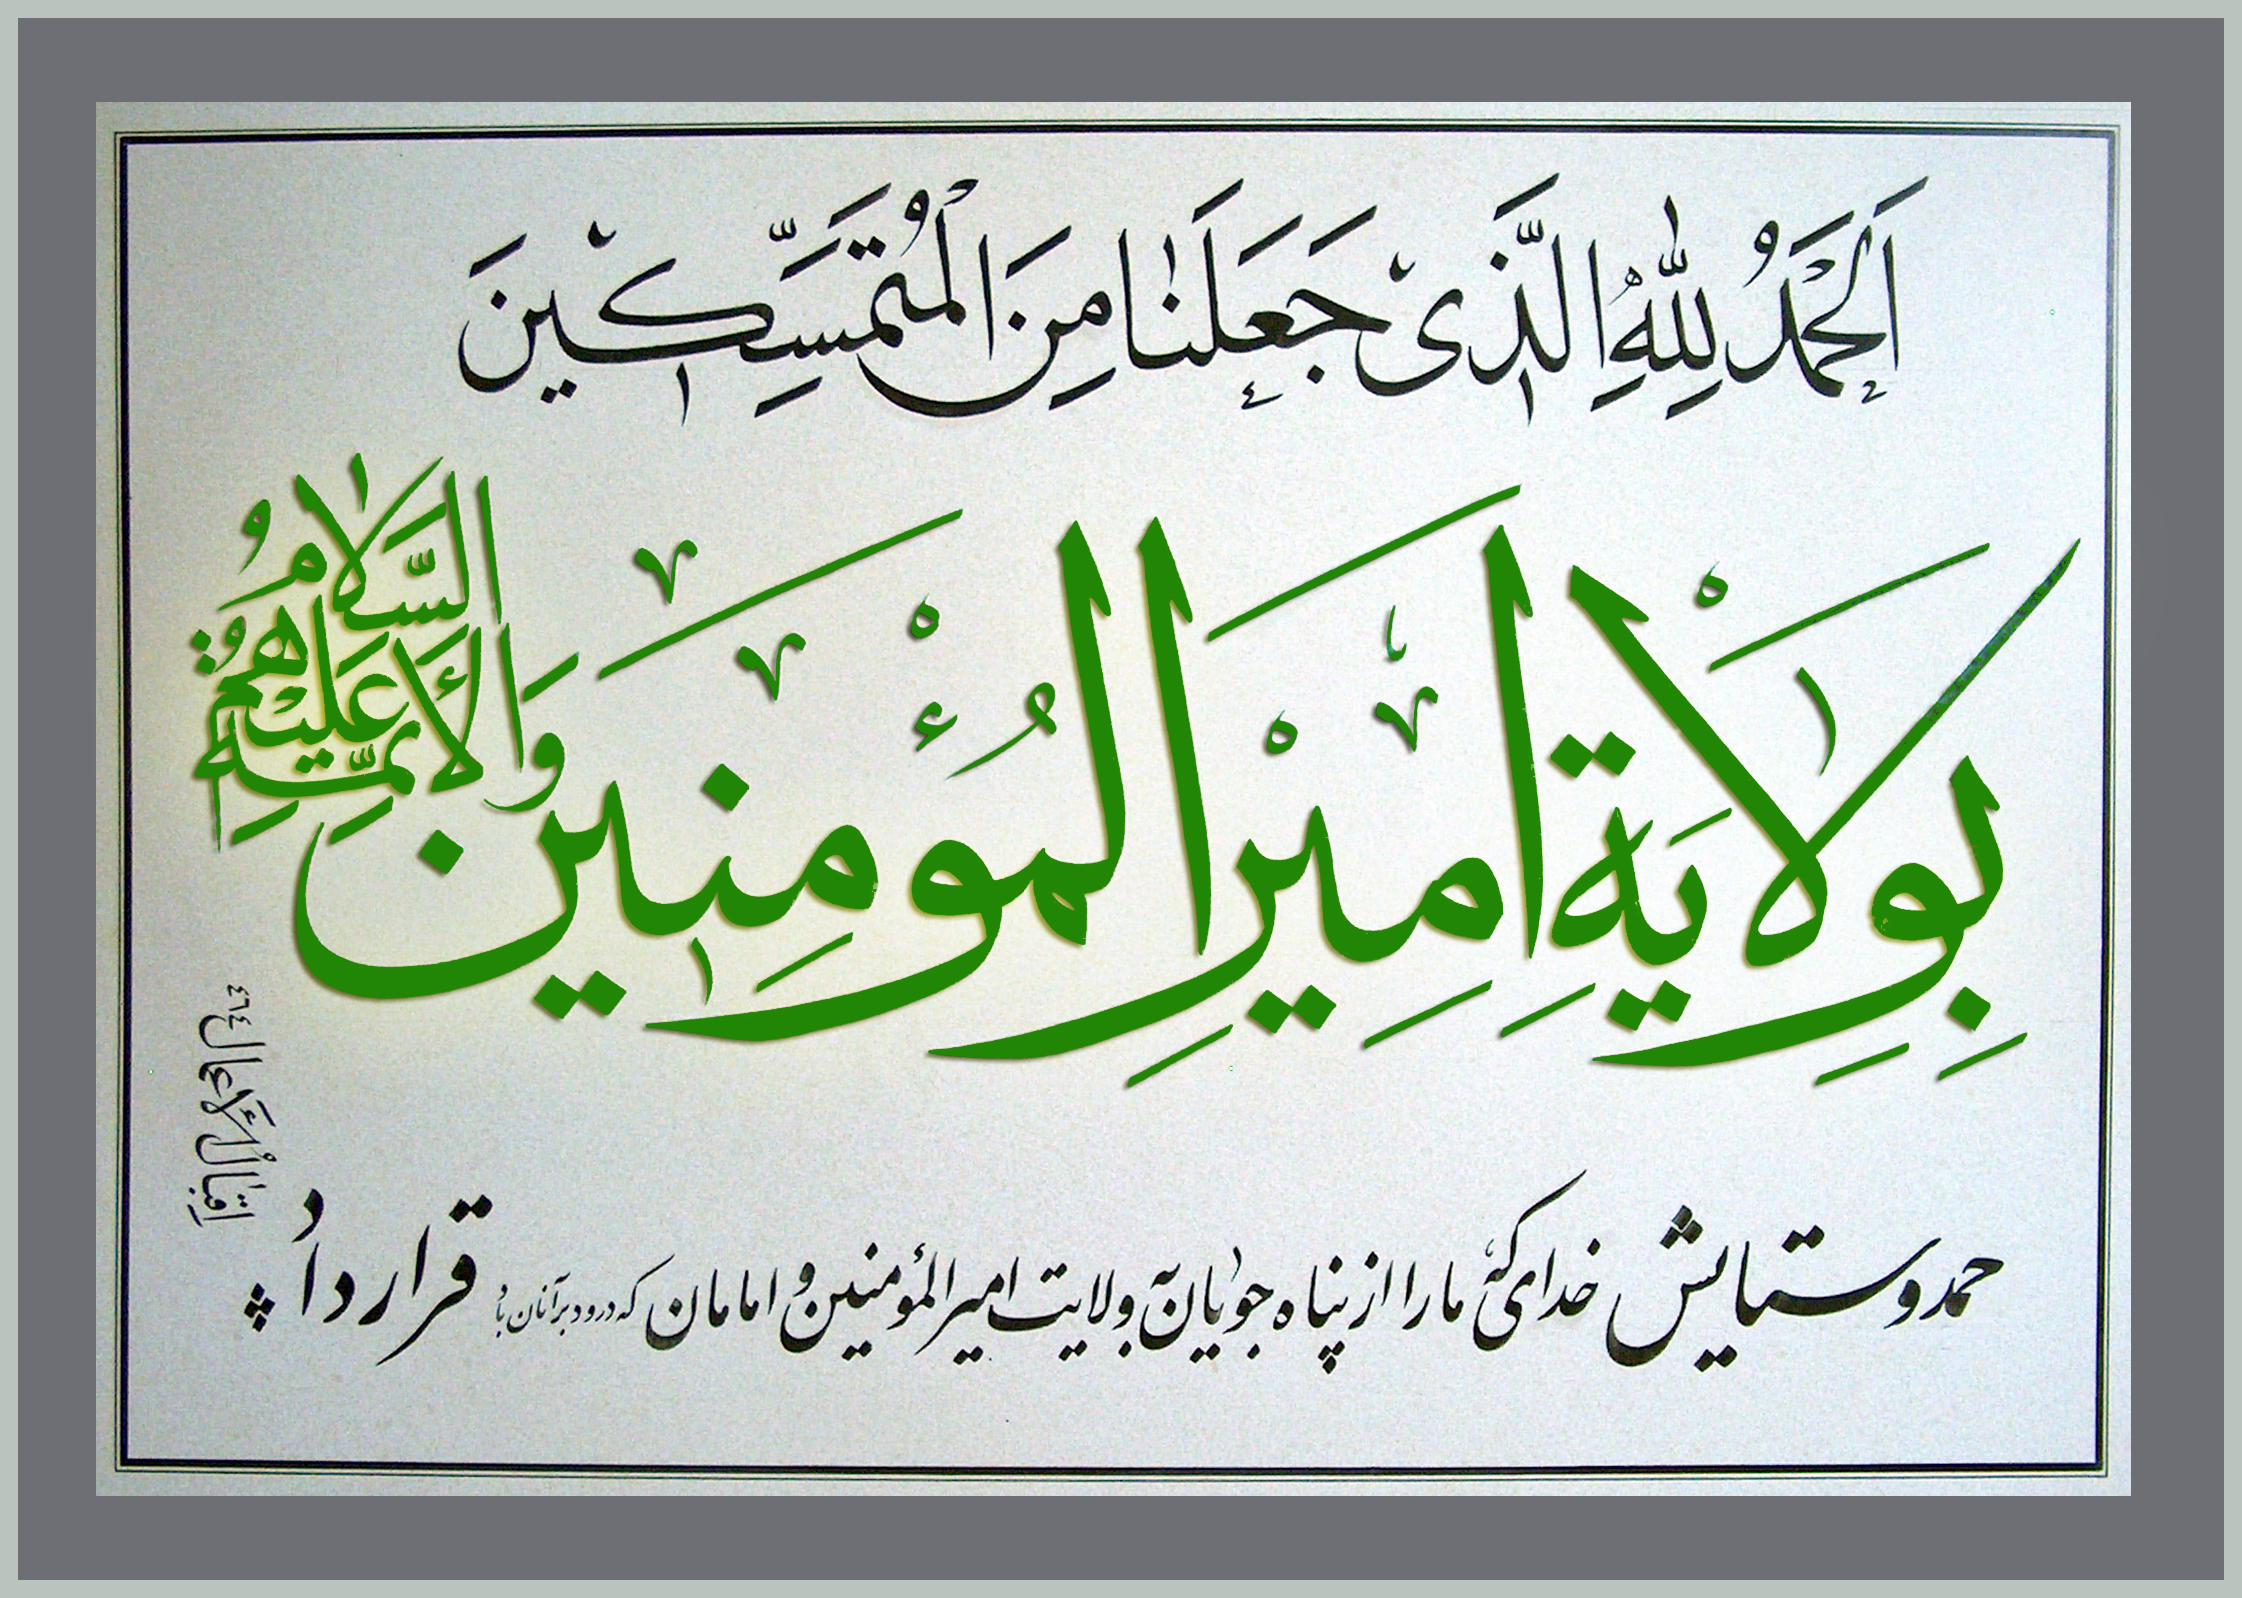 اَلْحَمْدُ لِلّٰهِ الَّذی جَعَلَنٰا مِنَ الْمُتَمَسِّکینَ
بِوِلاٰیَةِ اَمِیْرِ الْمُؤْمِنِینَ وَالْاَئِمَّةِ عَلَیْهِمُ السَّلاٰمُ
حمد و ستایش خدای که ما را از پناه جویان به ولایت امیرالمؤمنین و امامان که درود بر آنان باد قرار داد
اقبال الأعمال ٤٦٤